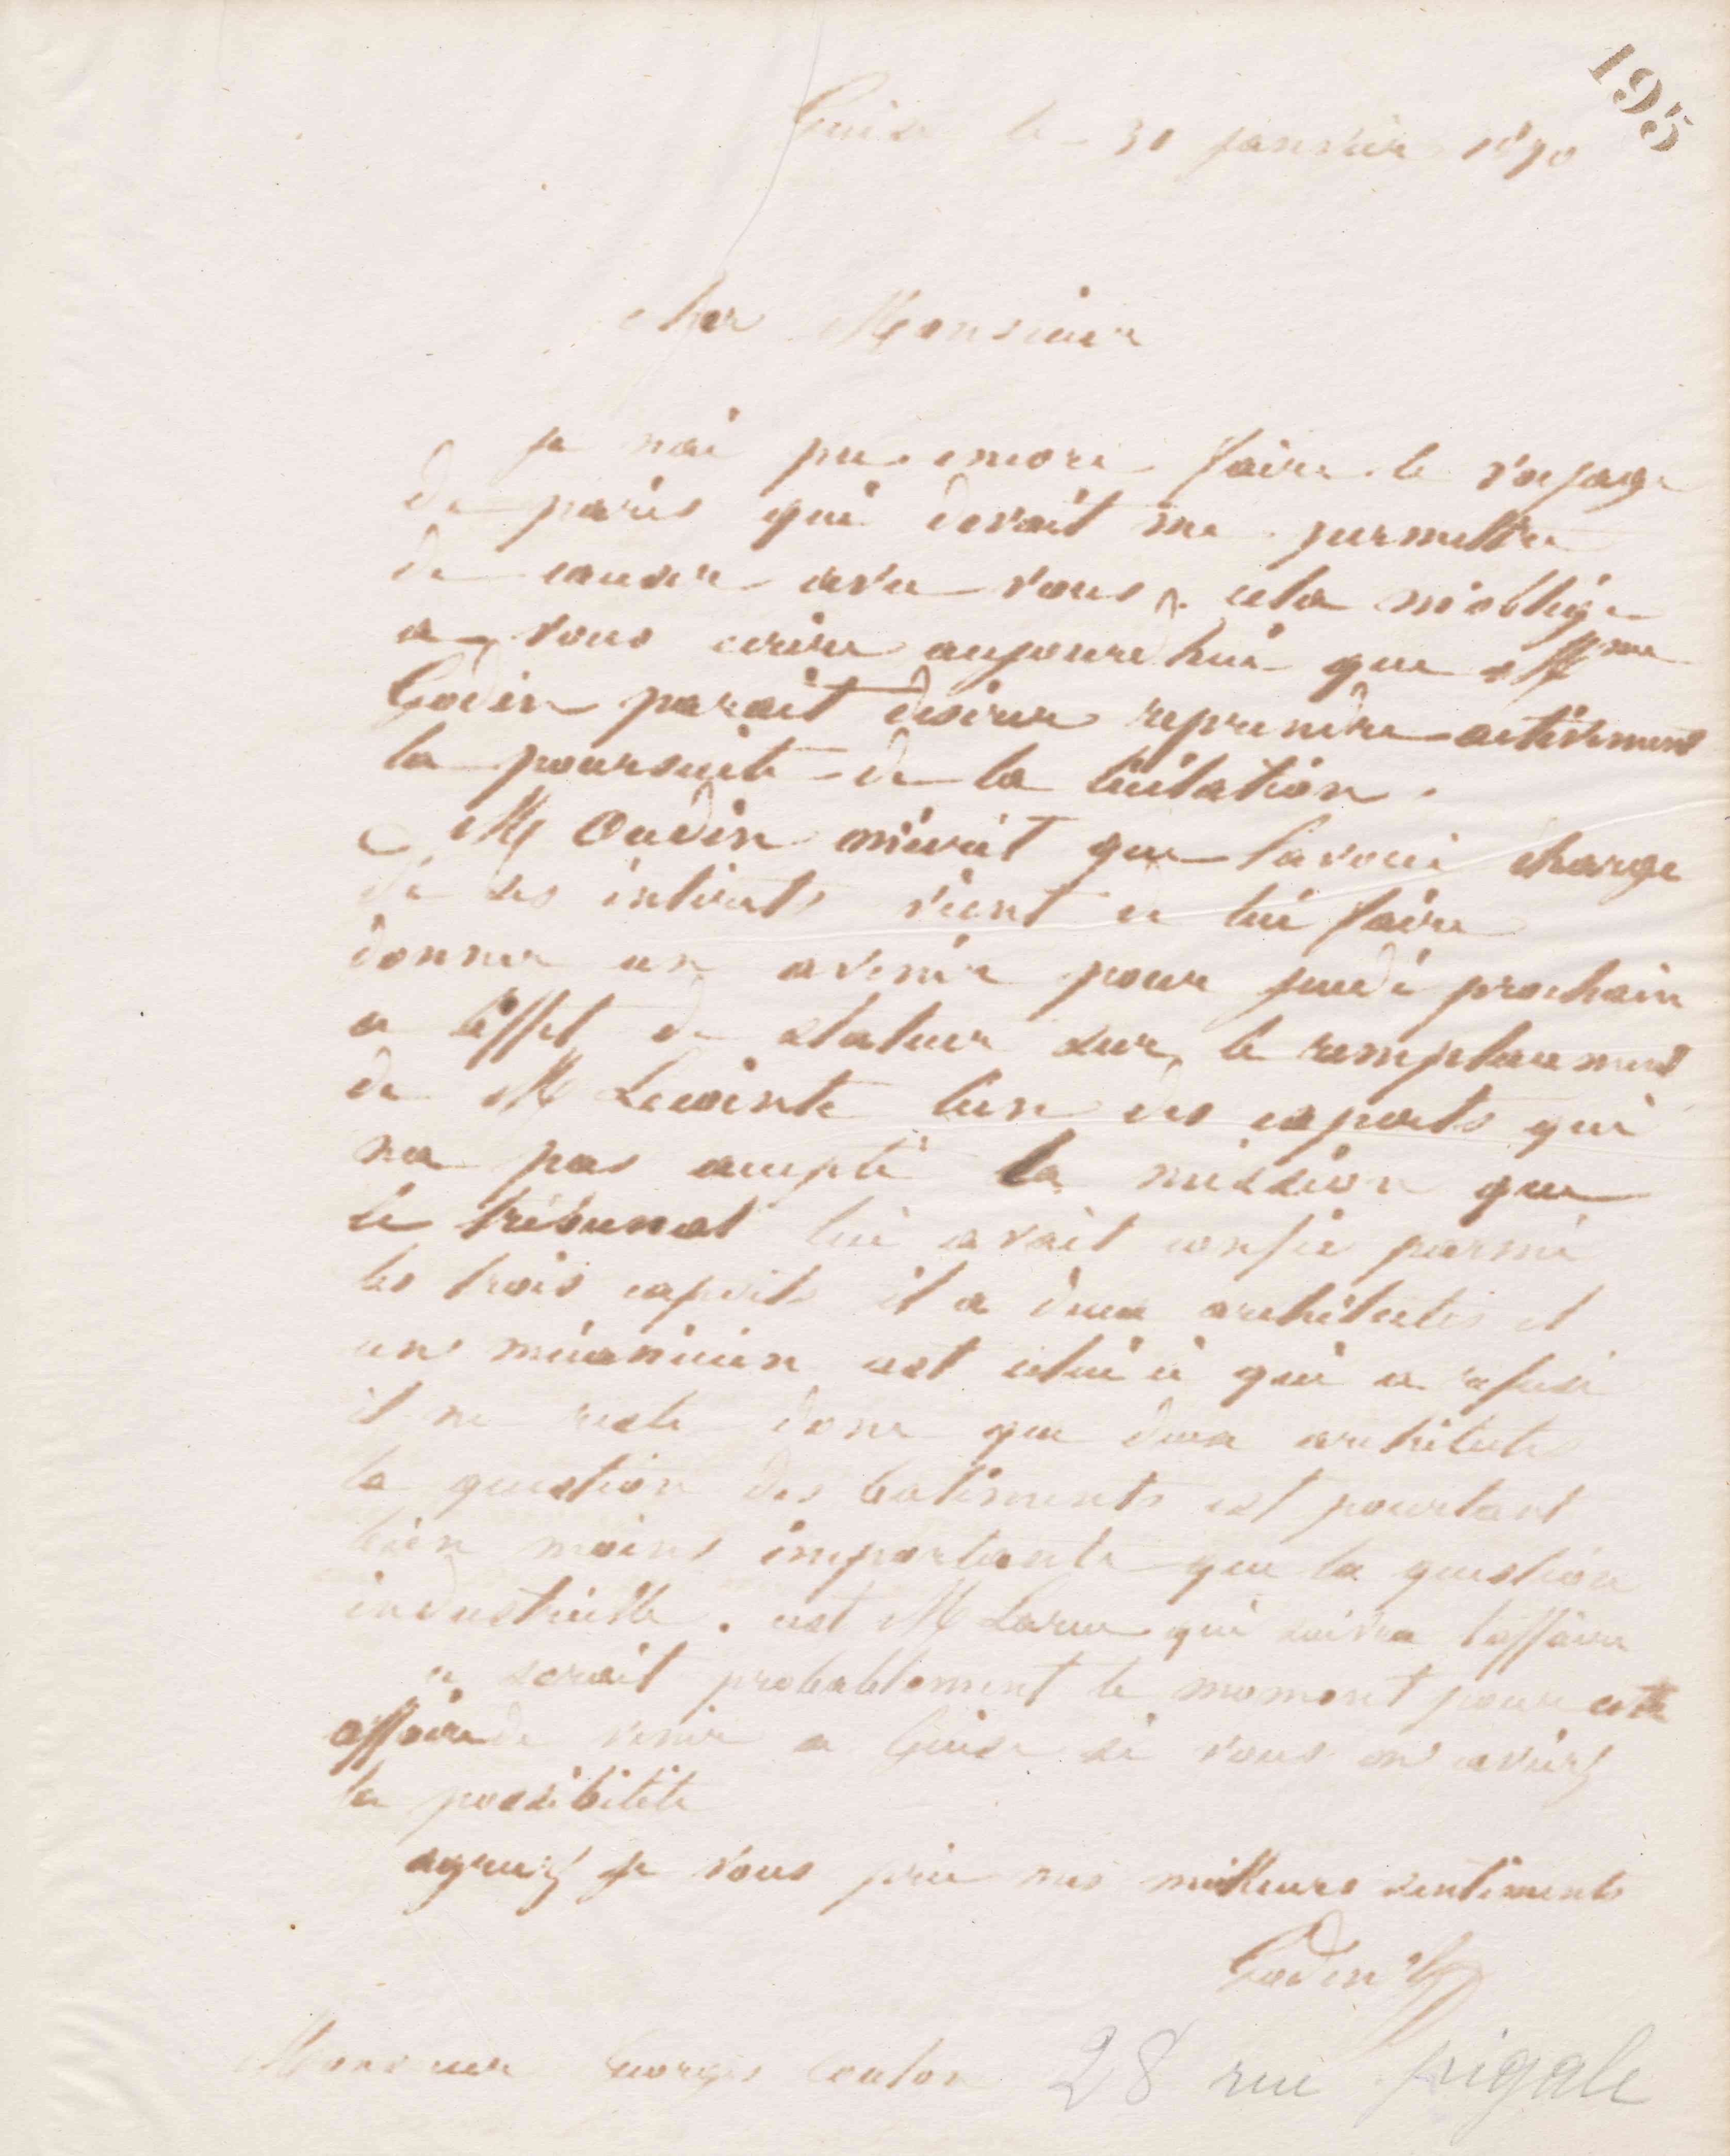 195
Guise le 31 janvier 1870
cher Monsieur
je nai pu encore faire le voyage
de paris qui devait me permettre
de causer avec vous, cela m'oblige
a vous ecrire aujourdhui que Mme
Godin parait desirer reprendre activement
la poursuite de la licitation.
M Oudin m'ecrit que lavoué charge
de ses intérets vient de lui faire
donner un avenir pour jeudi prochain
a leffet de statuer sur le remplacement
de M Lecointe lun des experts qui
na pas accepté la mission que
le tribunal lui avait confié parmi
les trois experts il a deux architectes et
un mécanicien cest celui ci qui a refusé
il ne reste donc que deux architectes
la question des batiments est pourtant
bien moins importante que la question
industrielle. cest M Larue qui suivra laffaire
ce serait probablement le moment pour cette
affaire de venir a Guise si vous en aviez
la possibilité
agreez je vous prie mes meilleurs sentiments
Godin
Monsieur Georges Coulon 28 rue pigale